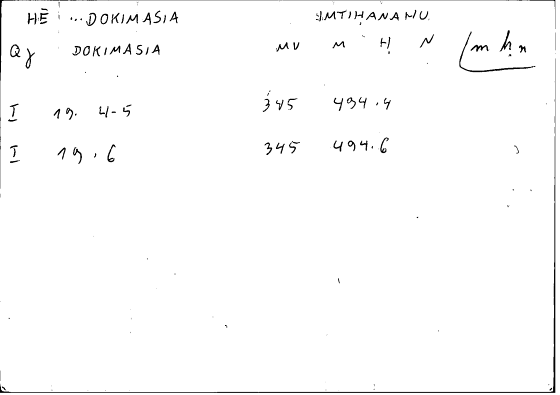 HĒ ... DOKIMASIA IMTIḤANAHU
Qγ DOKIMASIA MU M Ḥ N m ḥ n
I 19. 4-5 345 494.4
I 19.6 345 494.6